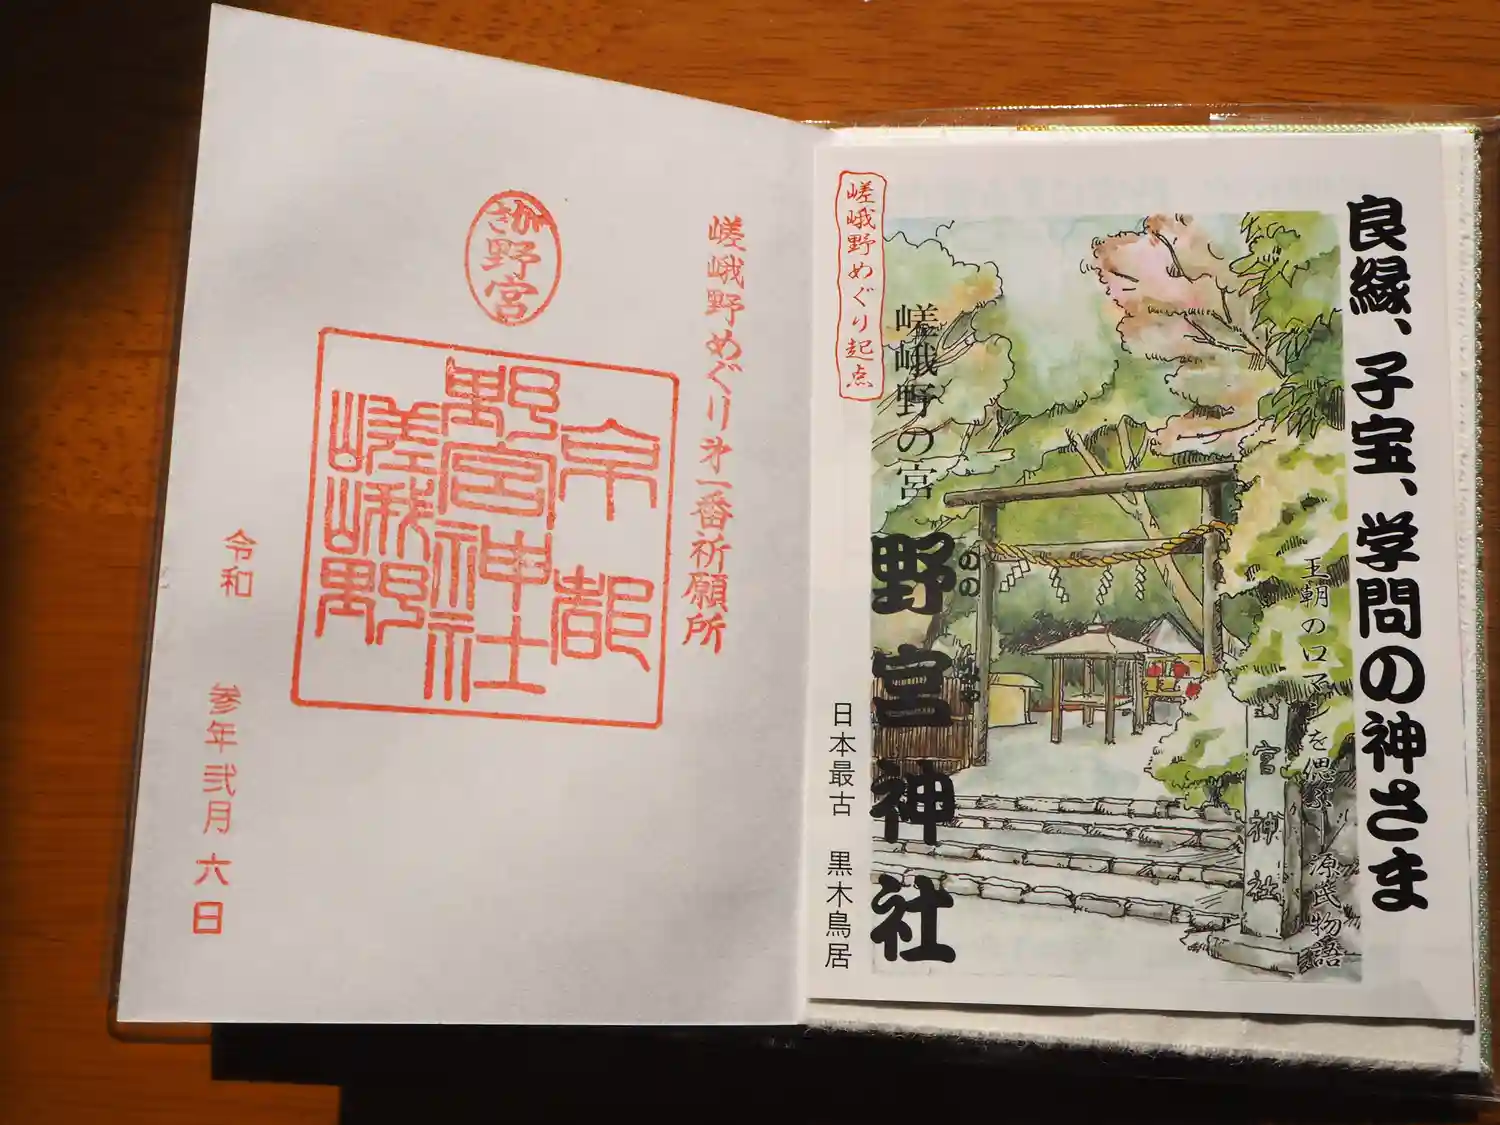 嵯峨野めぐり第一番祈願所
さが
野
宮
京都
野宮神社
嵯峨野
令和 参年 弐月 六日
良縁、子宝、学問の神さま
王朝のロマンを偲ぶ 源氏物語
嵯峨野の宮
野宮神社
ののみや
嵯峨野めぐり起点
日本最古 黒木鳥居
宮神社